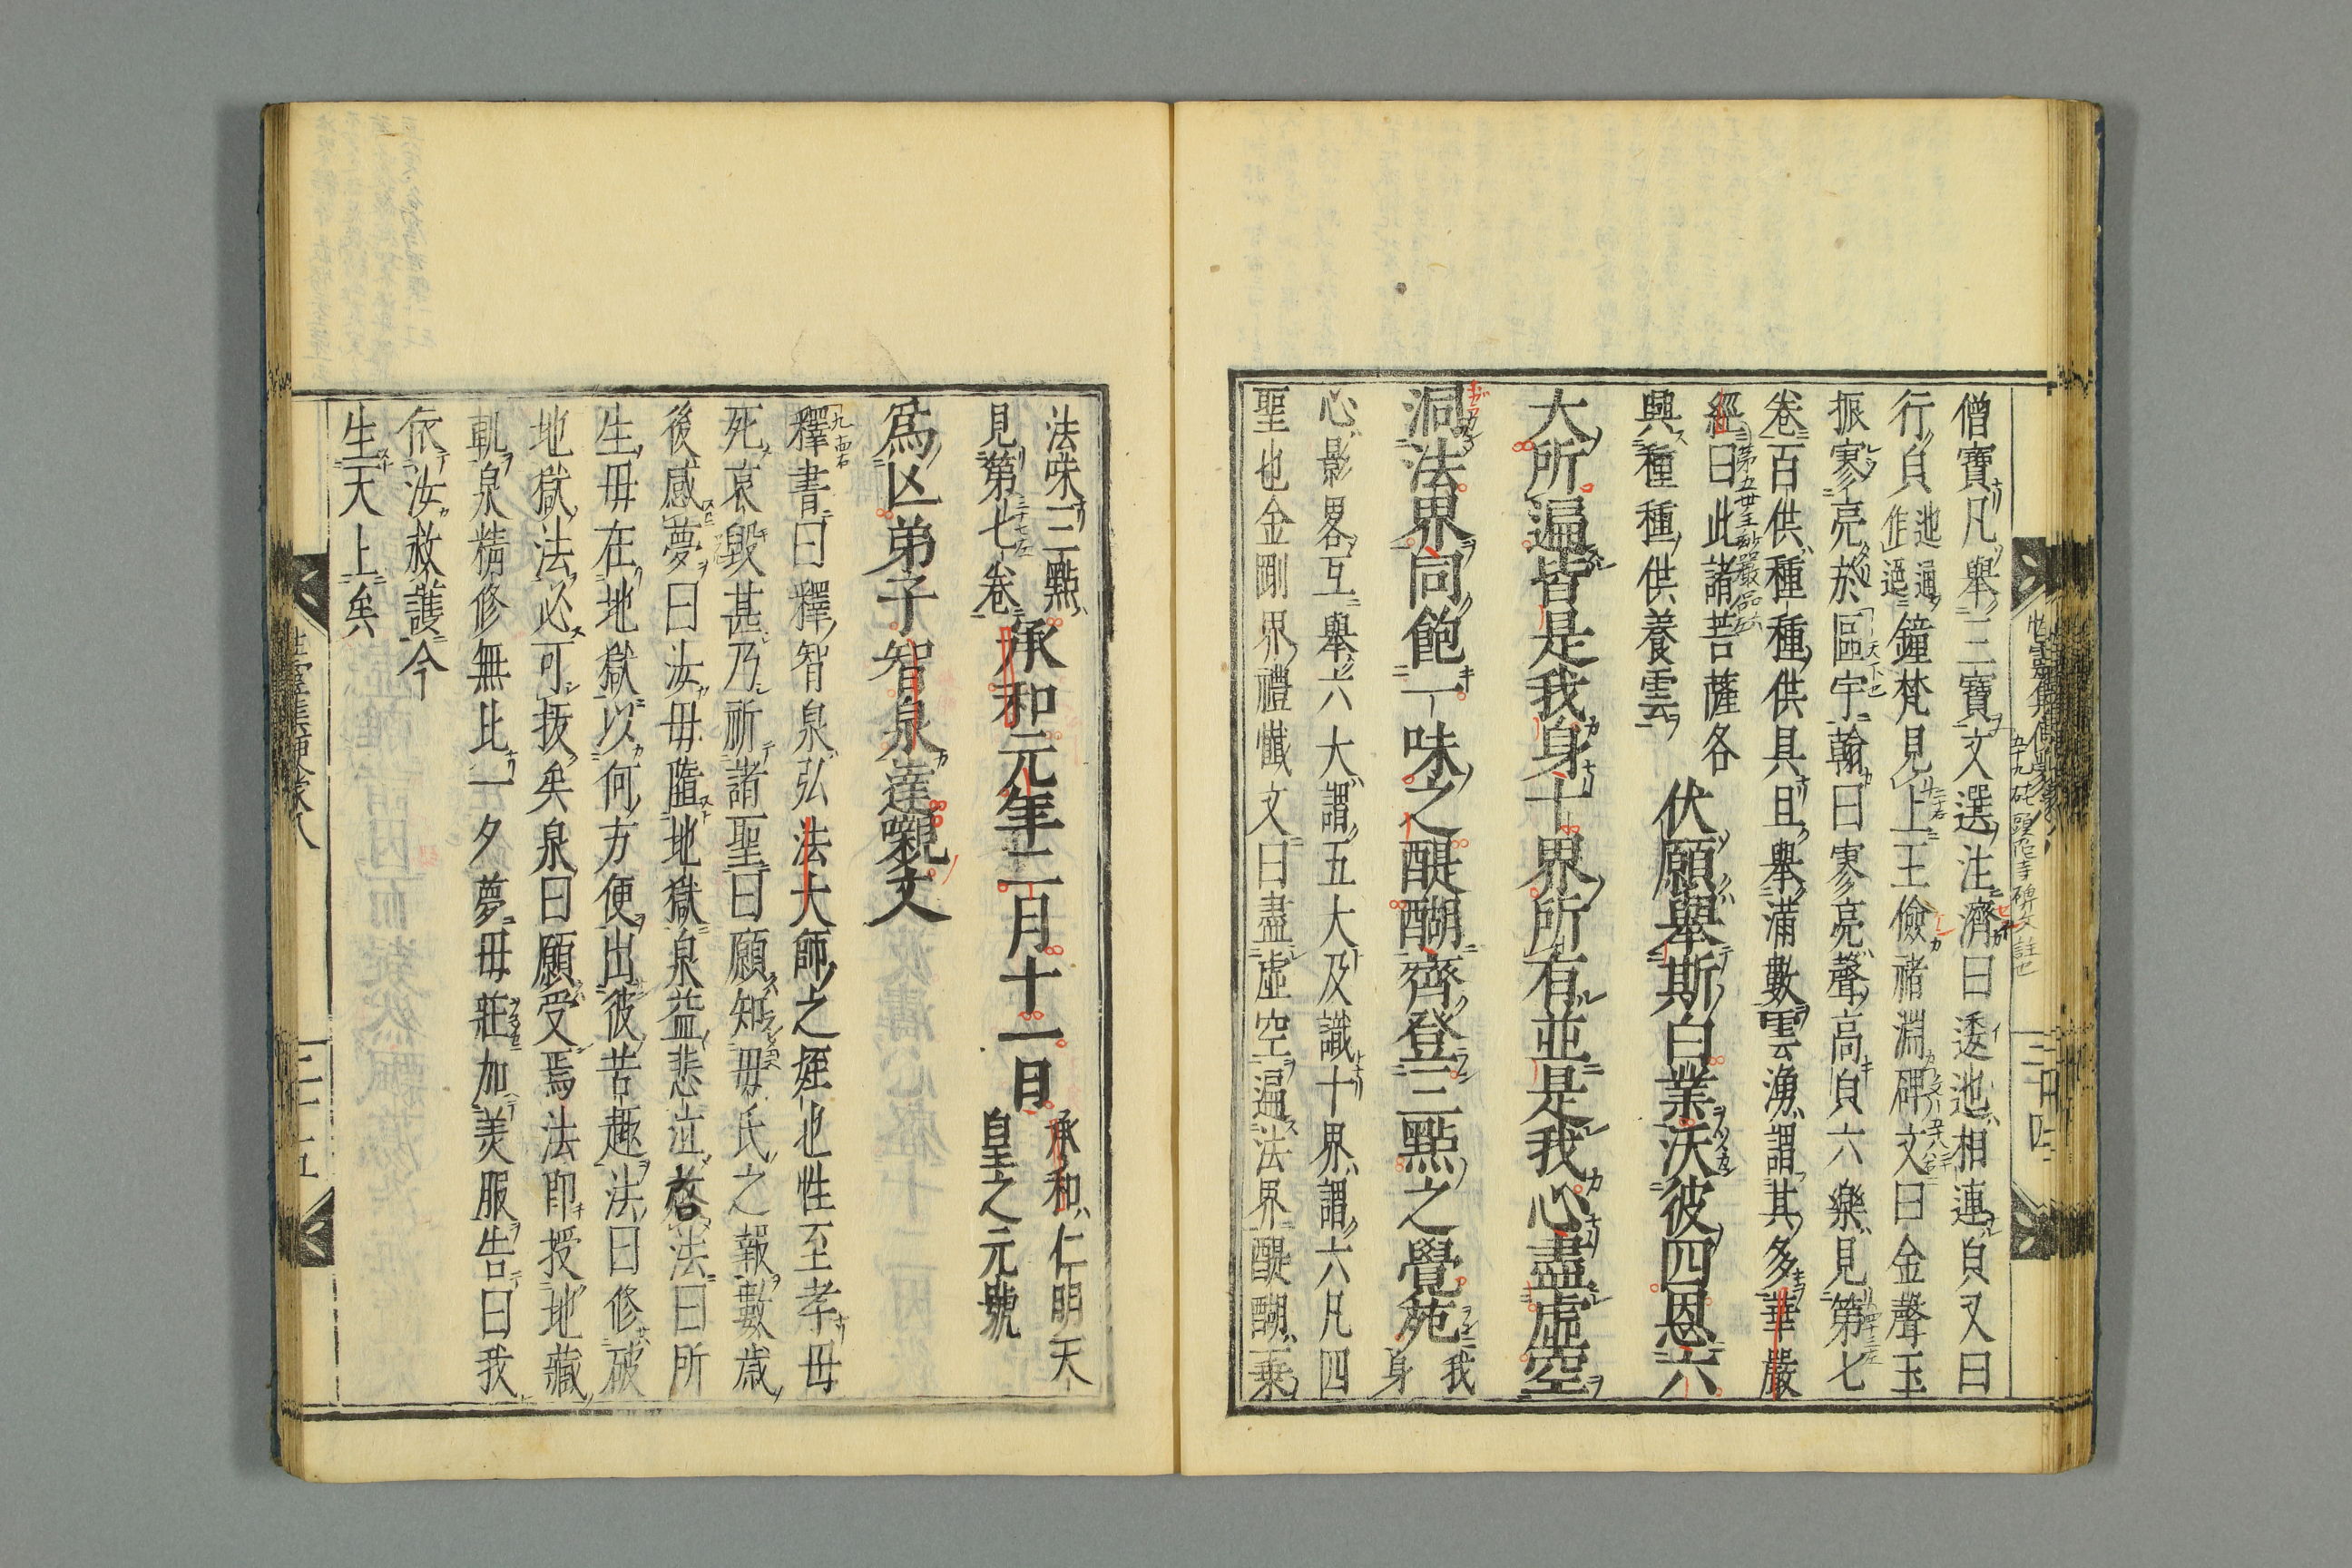 僧寶凡擧三寶文選注濟曰逶迤相連皃又曰
行皃迤作迆通鐘梵見上王儉褚淵碑文曰金聲玉
振寥亮於區宇翰曰寥亮聲高皃六樂見第七
卷百供種種供具且擧滿數雲湧謂其多華嚴
經曰此諸菩薩各
興種種供養雲伏願擧斯白業沃彼四恩六
大所遍皆是我身十界所有並是我心盡虛空
洞法界同飽一味之醍醐齊登三點之覺苑我身
心影畧互擧六大謂五大及識十界謂六凡四
聖也金剛界禮懺文曰盡虛空遍法界醍醐乗
三十四
法味三點
見第七卷承和元年二月十一日承和仁明天
皇之元號
爲亡弟子智泉達嚫文
釋書曰釋智泉弘法大師之姪也性至孝毋
死哀毀甚乃祈諸聖曰願知毋氏之報數歳
後感夢曰汝毋墮地獄泉益悲泣咨法曰所
生毋在地獄以何方便出彼苦趣法曰修破
地獄法必可拔矣泉曰願受焉法即授地藏
軌泉精修無比一夕夢毋莊加美服告曰我
依汝救護今
生天上矣
性靈集便蒙八
三十五